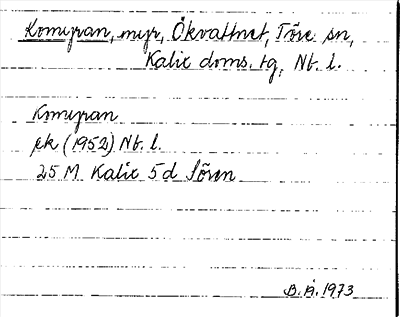 Komyran, myr, Ökvattnet, Töre sn,
Kalix doms. tg, Nb. l.
Komyran
ek (1952) Nb. l.
25 M Kalix 5 d Tören
B.Å. 1973